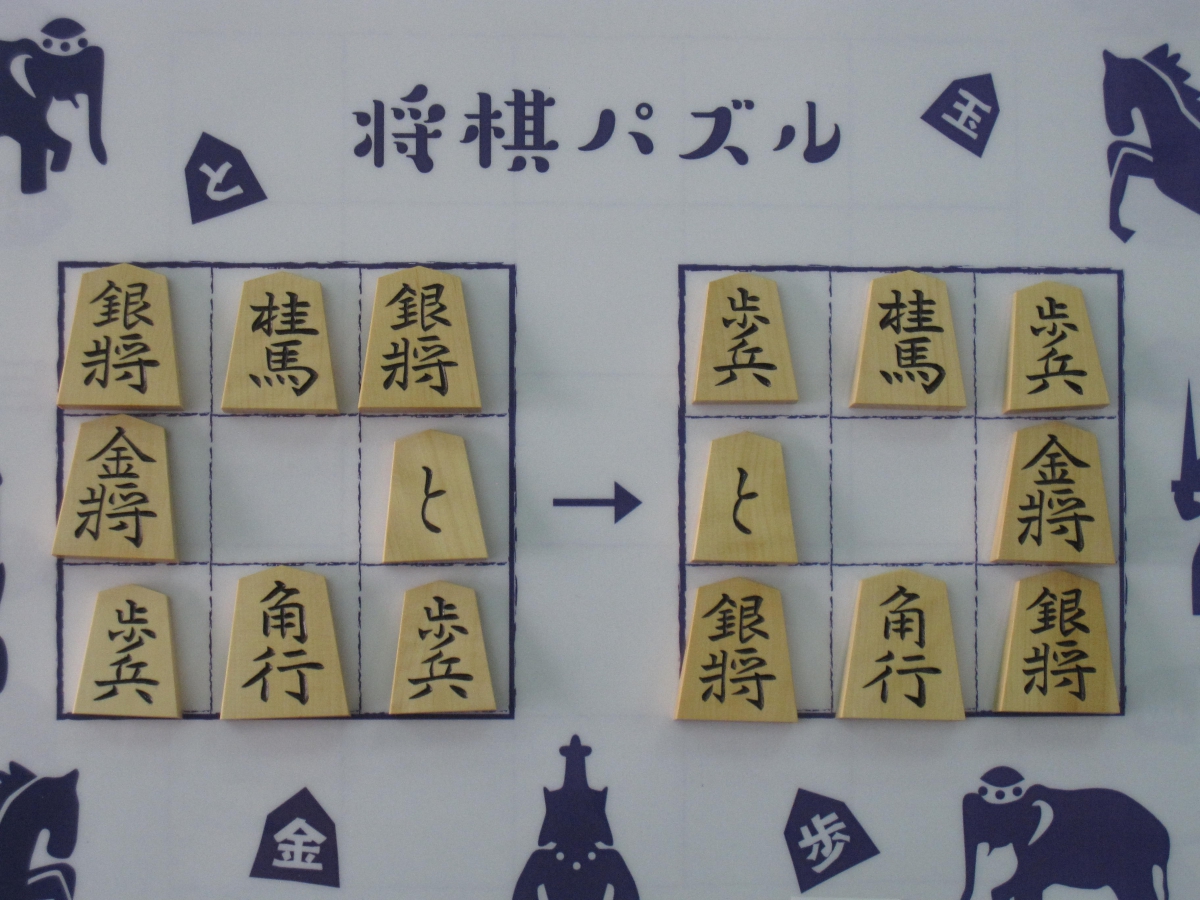 将棋パズル
玉
と
銀将 桂馬 銀将
金将 と
歩兵 角行 歩兵
歩兵 桂馬 歩兵
と 金将
銀将 角行 銀将
金
歩